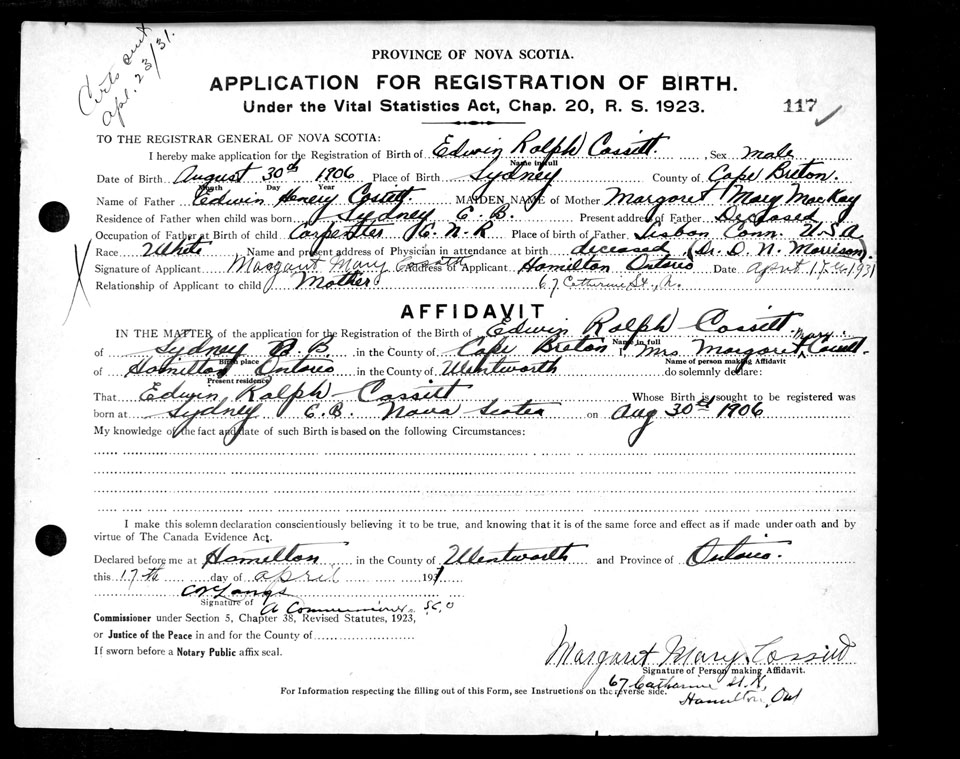 Certs sent
Apl. 23/31.
PROVINCE OF NOVA SCOTIA.
APPLICATION FOR REGISTRATION OF BIRTH.
Under the Vital Statistics Act, Chap. 20, R. S. 1923.
117
TO THE REGISTRAR GENERAL OF NOVA SCOTIA:
I hereby make application for the Registration of Birth of Edwin Ralph Cossitt. , Sex male
Name in full
Date of Birth August 30th 1906 Place of Birth Sydney County of Cape Breton.
Month Day Year
Name of Father Edwin Henry Cossitt. MAIDEN NAME of Mother Margaret Mary MacKay
Residence of Father when child was born Sydney C. B. Present address of Father Deceased
Occupation of Father at Birth of child Carpenter C. N. R Place of birth of Father Lisbon Conn. U.S.A
Race White Name and present address of Physician in attendance at birth deceased, (Dr. D. N. Morrison)
Signature of Applicant Margaret Mary Cossitt Address of Applicant Hamilton Ontario Date April 17th 1931
Relationship of Applicant to child Mother 67 Catherine St., N.
AFFIDAVIT
IN THE MATTER of the application for the Registration of the Birth of Edwin Ralph Cossitt
of Sydney C B in the County of Cape Breton I, Mrs. Margaret Mary Cossitt.
Birth place Name in full Name of person making Affidavit
of Hamilton Ontario in the County of Wentworth do solemnly declare:
Present residence
That Edwin Ralph Cossitt Whose Birth is sought to be registered was
born at Sydney C.B. Nova Scotia on Aug 30th 1906
My knowledge of the fact and date of such Birth is based on the following Circumstances:
I make this solemn declaration conscientiously believing it to be true, and knowing that it is of the same force and effect as if made under oath and by
virtue of The Canada Evidence Act.
Declared before me at Hamilton in the County of Wentworth and Province of Ontario.
this 17th day of April 1931
Signature of A Commissioner
Commissioner under Section 5, Chapter 38, Revised Statutes, 1923,
or Justice of the Peace in and for the County of
If sworn before a Notary Public affix seal.
Margaret Mary Cossitt
Signature of Person making Affidavit.
67 Catharine St. N,
Hamilton, Ont
For Information respecting the filling out of this Form, see Instructions on the reverse side.